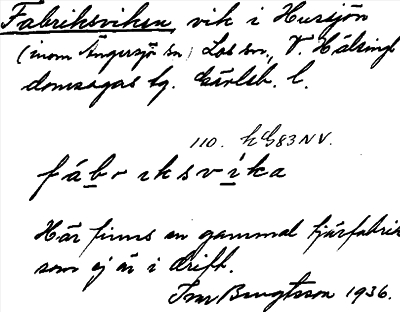 Fabriksviken vik i Hussjön
(inom Ängersjö sn) Los sn, V. Hälsingl
domsagas tg. Gävleb. l.
110. NV.
fábriksvíka
Här finns en gammal tjärfabrik
som ej är i drift.
Ivar Bengtsson 1936.